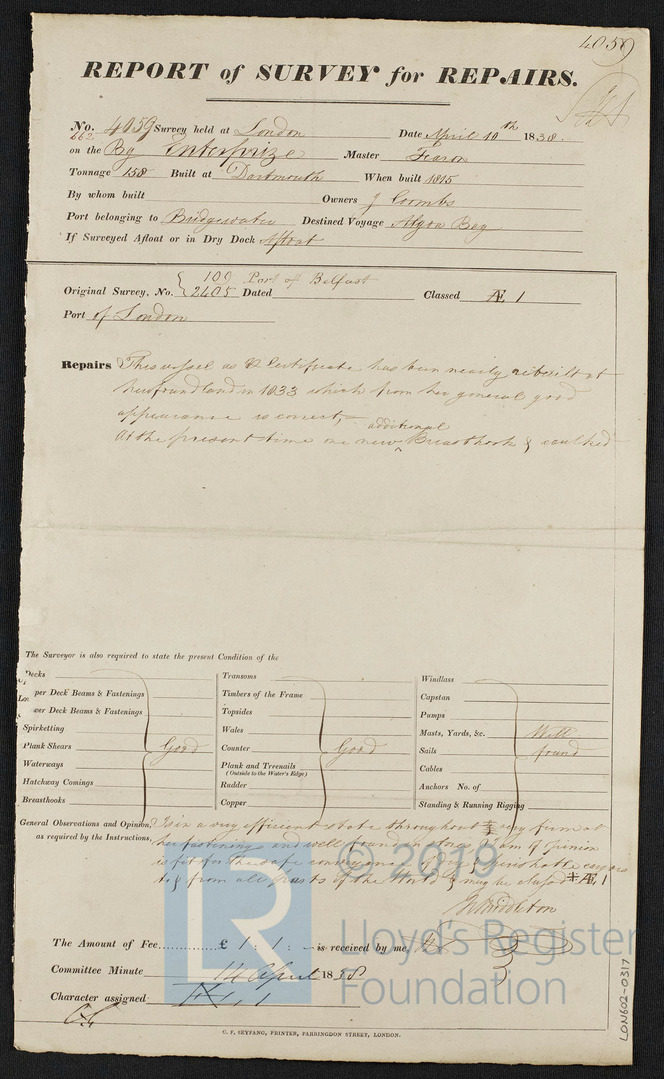 4059
REPORT of SURVEY for REPAIRS.
No. 4059 Survey held at London Date April 10th 1838.
262
on the Bg Enterprize Master Fearon
Tonnage 158 Built at Dartmouth When built 1815
By whom built Owners J Coombs
Port belonging to Bridgewater Destined Voyage Algoa Bay
If Surveyed Afloat or in Dry Dock Afloat
109 Port of Belfast
Original Survey, No. 2405 Dated Classed Æ 1
Port of London
Repairs This vessel as Certificate has been nearly rebuilt at
Newfoundland in 1833 which from her general good
appearance is correct,
additional
At the present time one new ^ Breasthook & caulked
The Surveyor is also required to state the present Condition of the
Decks
per Deck Beams & Fastenings
wer Deck Beams & Fastenings
Spirketting
Plank Shears
Waterways
Hatchway Comings
Breasthooks
Good
Transoms
Timbers of the Frame
Topsides
Wales
Counter
Plank and Treenails
(Outside to the Water's Edge)
Rudder
Copper
Good
Windlass
Capstan
Pumps
Masts, Yards, &c.
Sails
Cables
Anchors No. of
Standing & Running Rigging
Well
found
General Observations and Opinion, Is in a very efficient state throughout & very firm at
as required by the Instructions, her fastening and well found in stores & I am of opinion
is fit for the safe conveyance of dry & Perishable cargoes
to & from all parts of the World & may be classed Æ 1
Middleton
The Amount of Fee............ £ 1 : 1 : – is received by me,
Committee Minute 14 April 1838
Character assigned Æ 1
C. F. SEYFANG, PRINTER, FARRINGDON STREET, LONDON.
LON602-0317
LR
© 2019
Lloyd's Register
Foundation